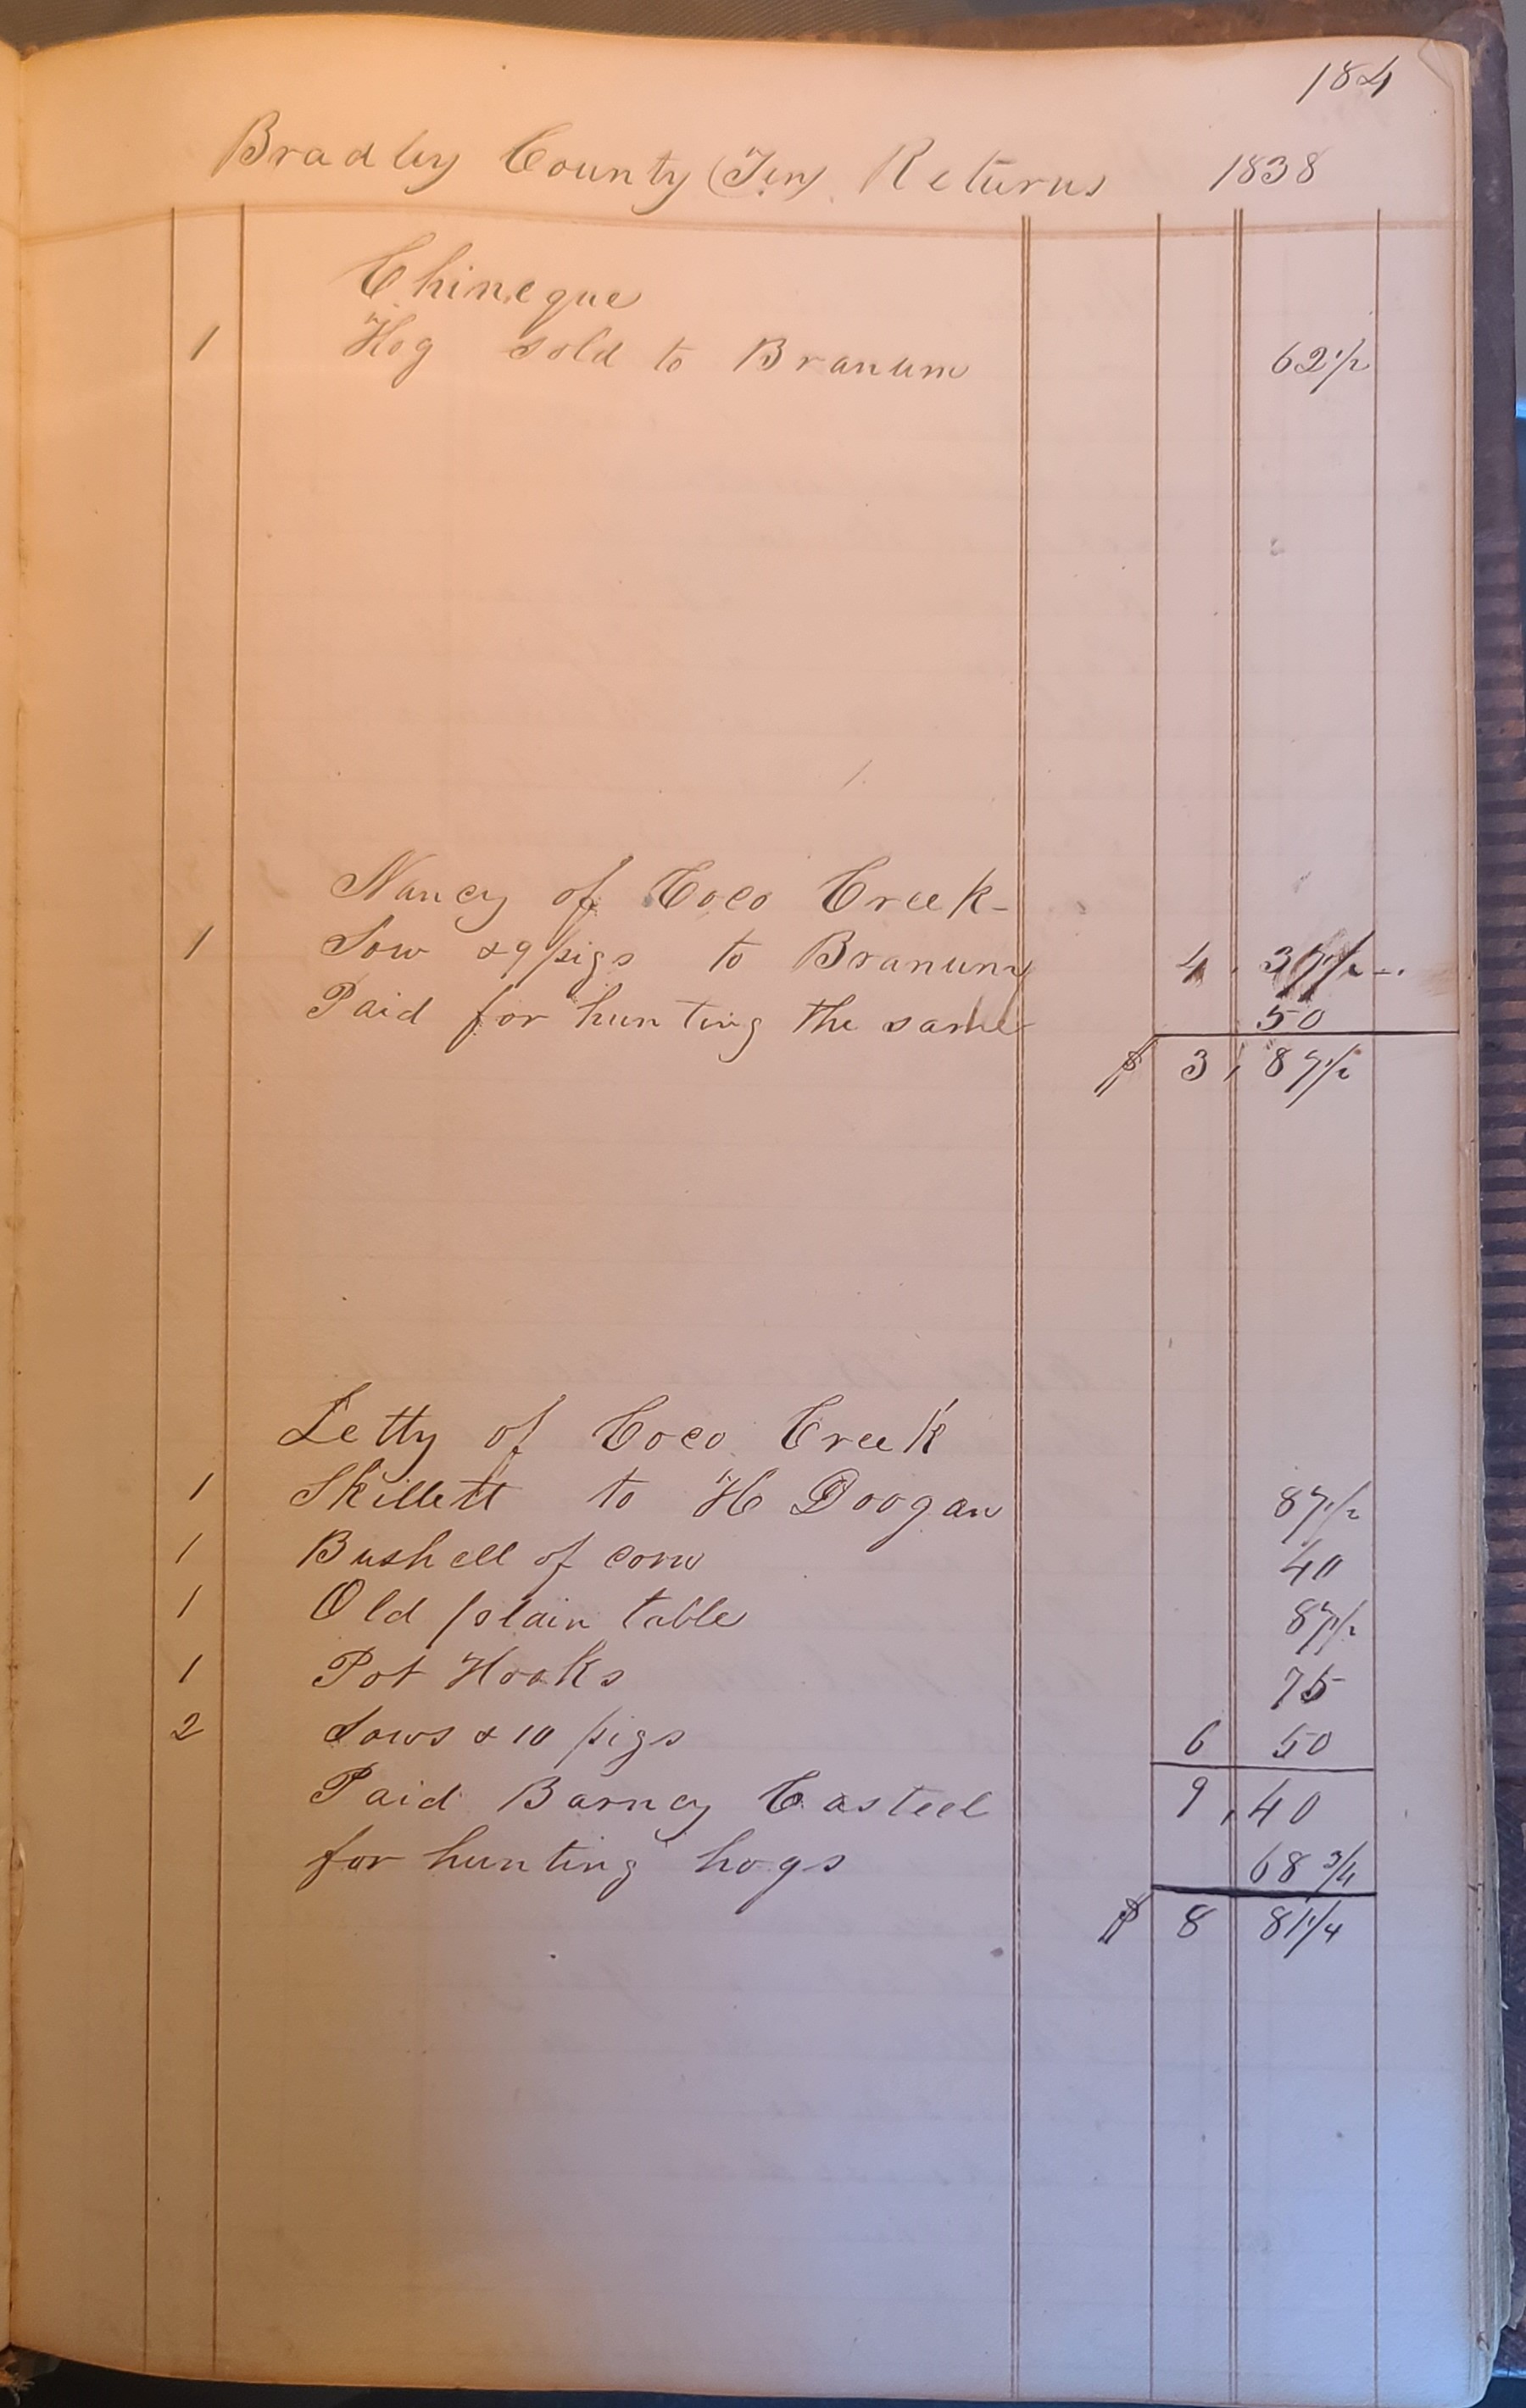 184
Bradley County (Ten) Returns 1838
Chineque
1 Hog sold to Branum 62 1/2
Nancy of Coco Creek -
1 Sow & 9 pigs to Branum 4, 37 1/2
Paid for hunting the same 50
$ 3, 87 1/2
Letty of Coco Creek
1 Skillett to H Doogan 87 1/2
1 Bushell of corn 40
1 Old plain table 87 1/2
1 Pot Hooks 75
2 Sows & 10 pigs 6 50
Paid Barney Casteel 9, 40
for hunting hogs 68 3/4
$ 8 81 1/4